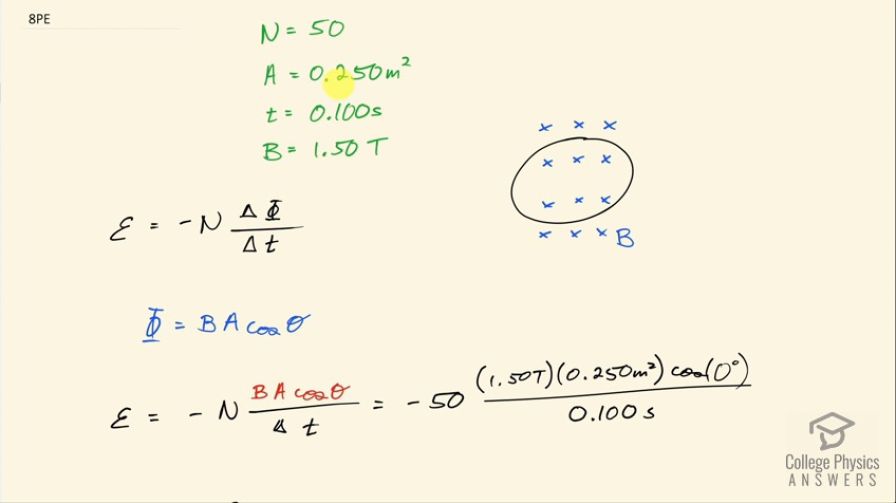 8PE
N = 50
A = 0.250 m²
t = 0.100 s
B = 1.50 T
x x x
x x x
x x x
x x x B
ℰ = -N ΔΦ / Δt
Φ = BA cosθ
ℰ = -N BA cosθ / Δt = -50 (1.50T)(0.250m²) cos(0°) / 0.100 s
College Physics
ANSWERS